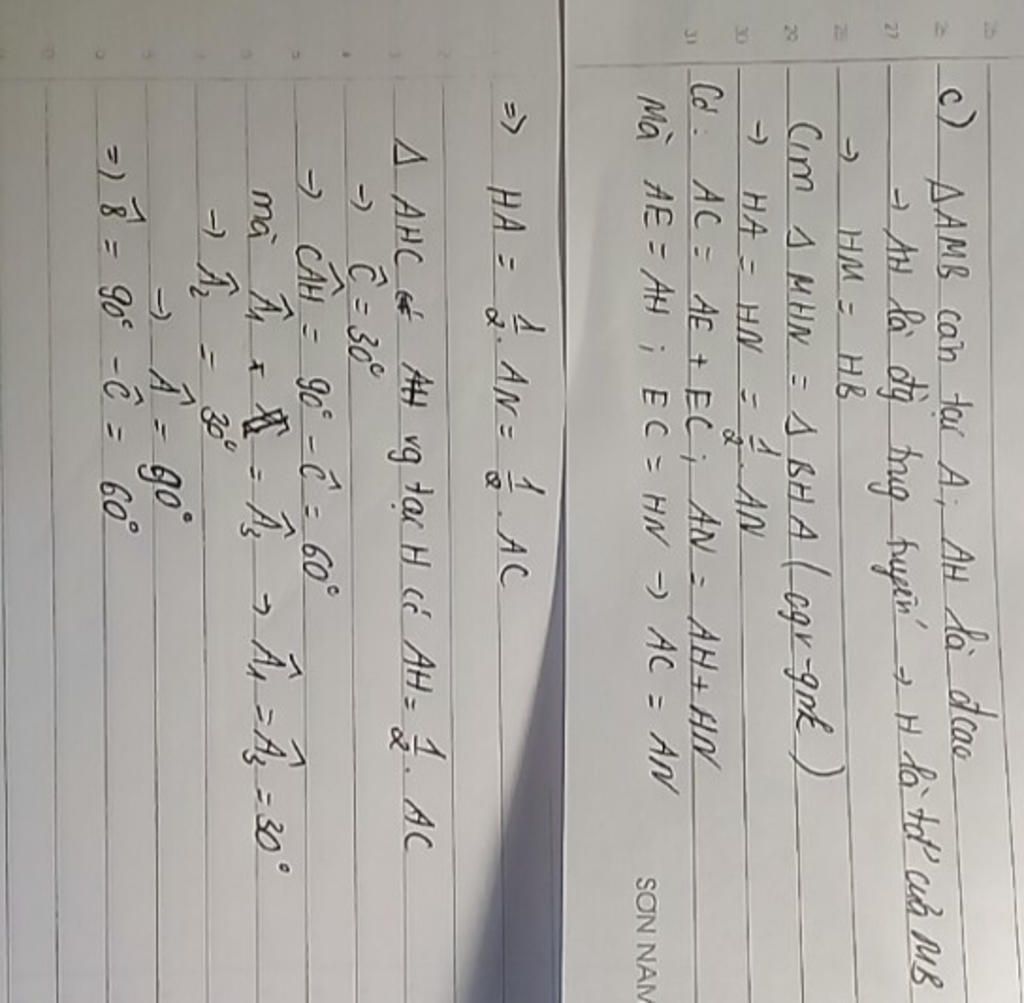 c) ΔAMB cân tại A; AH là đcao
→ AH là đg trug tuyến → H là tđ' của MB
→ HM = HB
C/m Δ MHN = Δ BHA (cgv-gnk)
→ HA = HN = 1/2 . AN
Có: AC = AE + EC; AN = AH + HN
Mà AE = AH ; EC = HN → AC = AN
SƠN NAM
=> HA = 1/2 . AN = 1/2 . AC
Δ AHC vg tại H có AH = 1/2 . AC
→ Ĉ = 30°
→ CÂH = 90° - Ĉ = 60°
mà Â1 = Â3 → Â1 = Â3 = 30°
→ Â2 = 30°
→ Â = 90°
=> B̂ = 90° - Ĉ = 60°
25
26
27
28
29
30
31